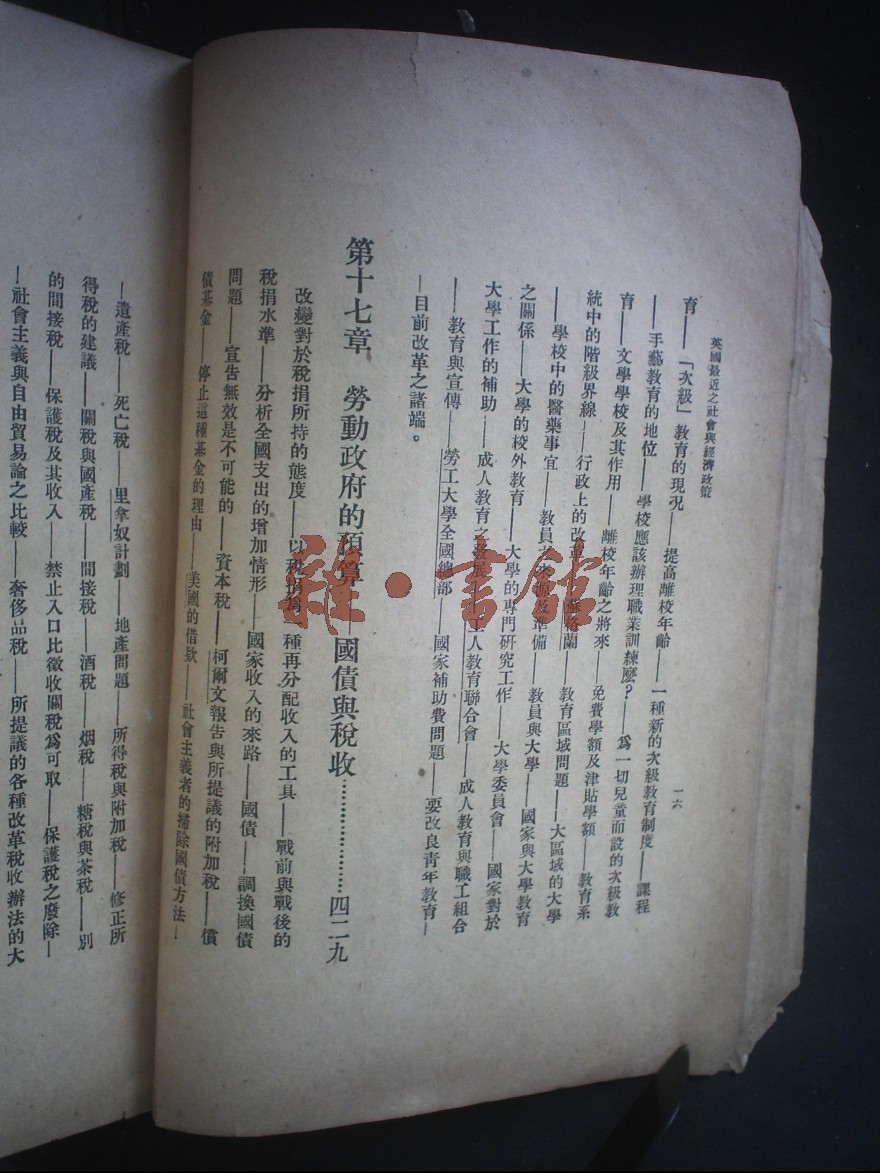 英國最近之社會與經濟政策
一六
育——「次級」教育的現況——提高離校年齡——一種新的次級教育制度——課程
——手藝教育的地位——學校應該辦理職業訓練麽?——爲一切兒童而設的次級教
育——文學學校及其作用——離校年齡之將來——免費學額及津貼學額——教育系
統中的階級界線——行政上的改革——蘇格蘭——教育區域問題——大區域的大學
——學校中的醫藥事宜——教員之來源及準備——教員與大學——國家與大學教育
之關係——大學的校外教育——大學的專門研究工作——大學委員會——國家對於
大學工作的補助——成人教育之發展——工人教育聯合會——成人教育與職工組合
——教育與宣傳——勞工大學全國總部——國家補助費問題——要改良青年教育—
—目前改革之諸端。
第十七章 勞動政府的預算——國債與稅收……四二九
改變對於稅捐所持的態度——以稅捐爲一種再分配收入的工具——戰前與戰後的
稅捐水準——分析全國支出的增加情形——國家收入的來路——國債——調換國債
問題——宣告無效是不可能的——資本稅——柯爾文報告與所提議的附加稅——償
債基金——停止這種基金的理由——美國的借款——社會主義者的掃除國債方法—
—遺產稅——死亡稅——里拿奴計劃——地產問題——所得稅與附加稅——修正所
得稅的建議——關稅與國產稅——間接稅——酒稅——烟稅——糖稅與茶稅——別
的間接稅——保護稅及其收入——禁止入口比徵收關稅爲可取——保護稅之廢除—
—社會主義與自由貿易論之比較——奢侈品稅——所提議的各種改革稅收辦法的大
雜·書館